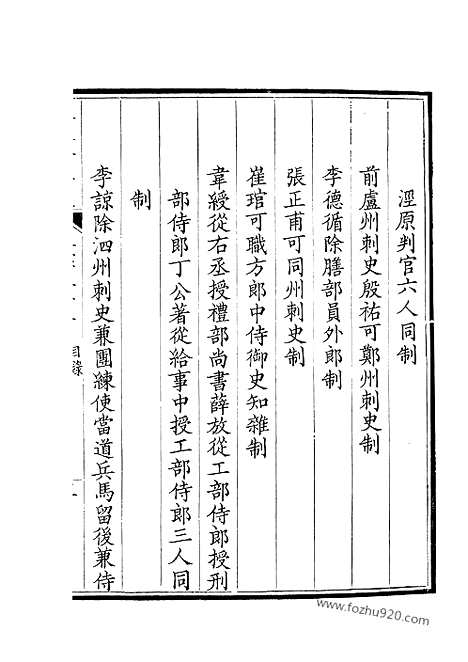 涇原判官六人同制
前盧州刺史殷祐可鄭州刺史制
李德循除膳部員外郎制
張正甫可同州刺史制
崔琯可職方郎中侍御史知雜制
韋綬從右丞授禮部尚書薛放從工部侍郎授刑
部侍郎丁公著從給事中授工部侍郎三人同
制
李諒除泗州刺史兼團練使當道兵馬留後兼侍
目錄
www.fozhu920.com